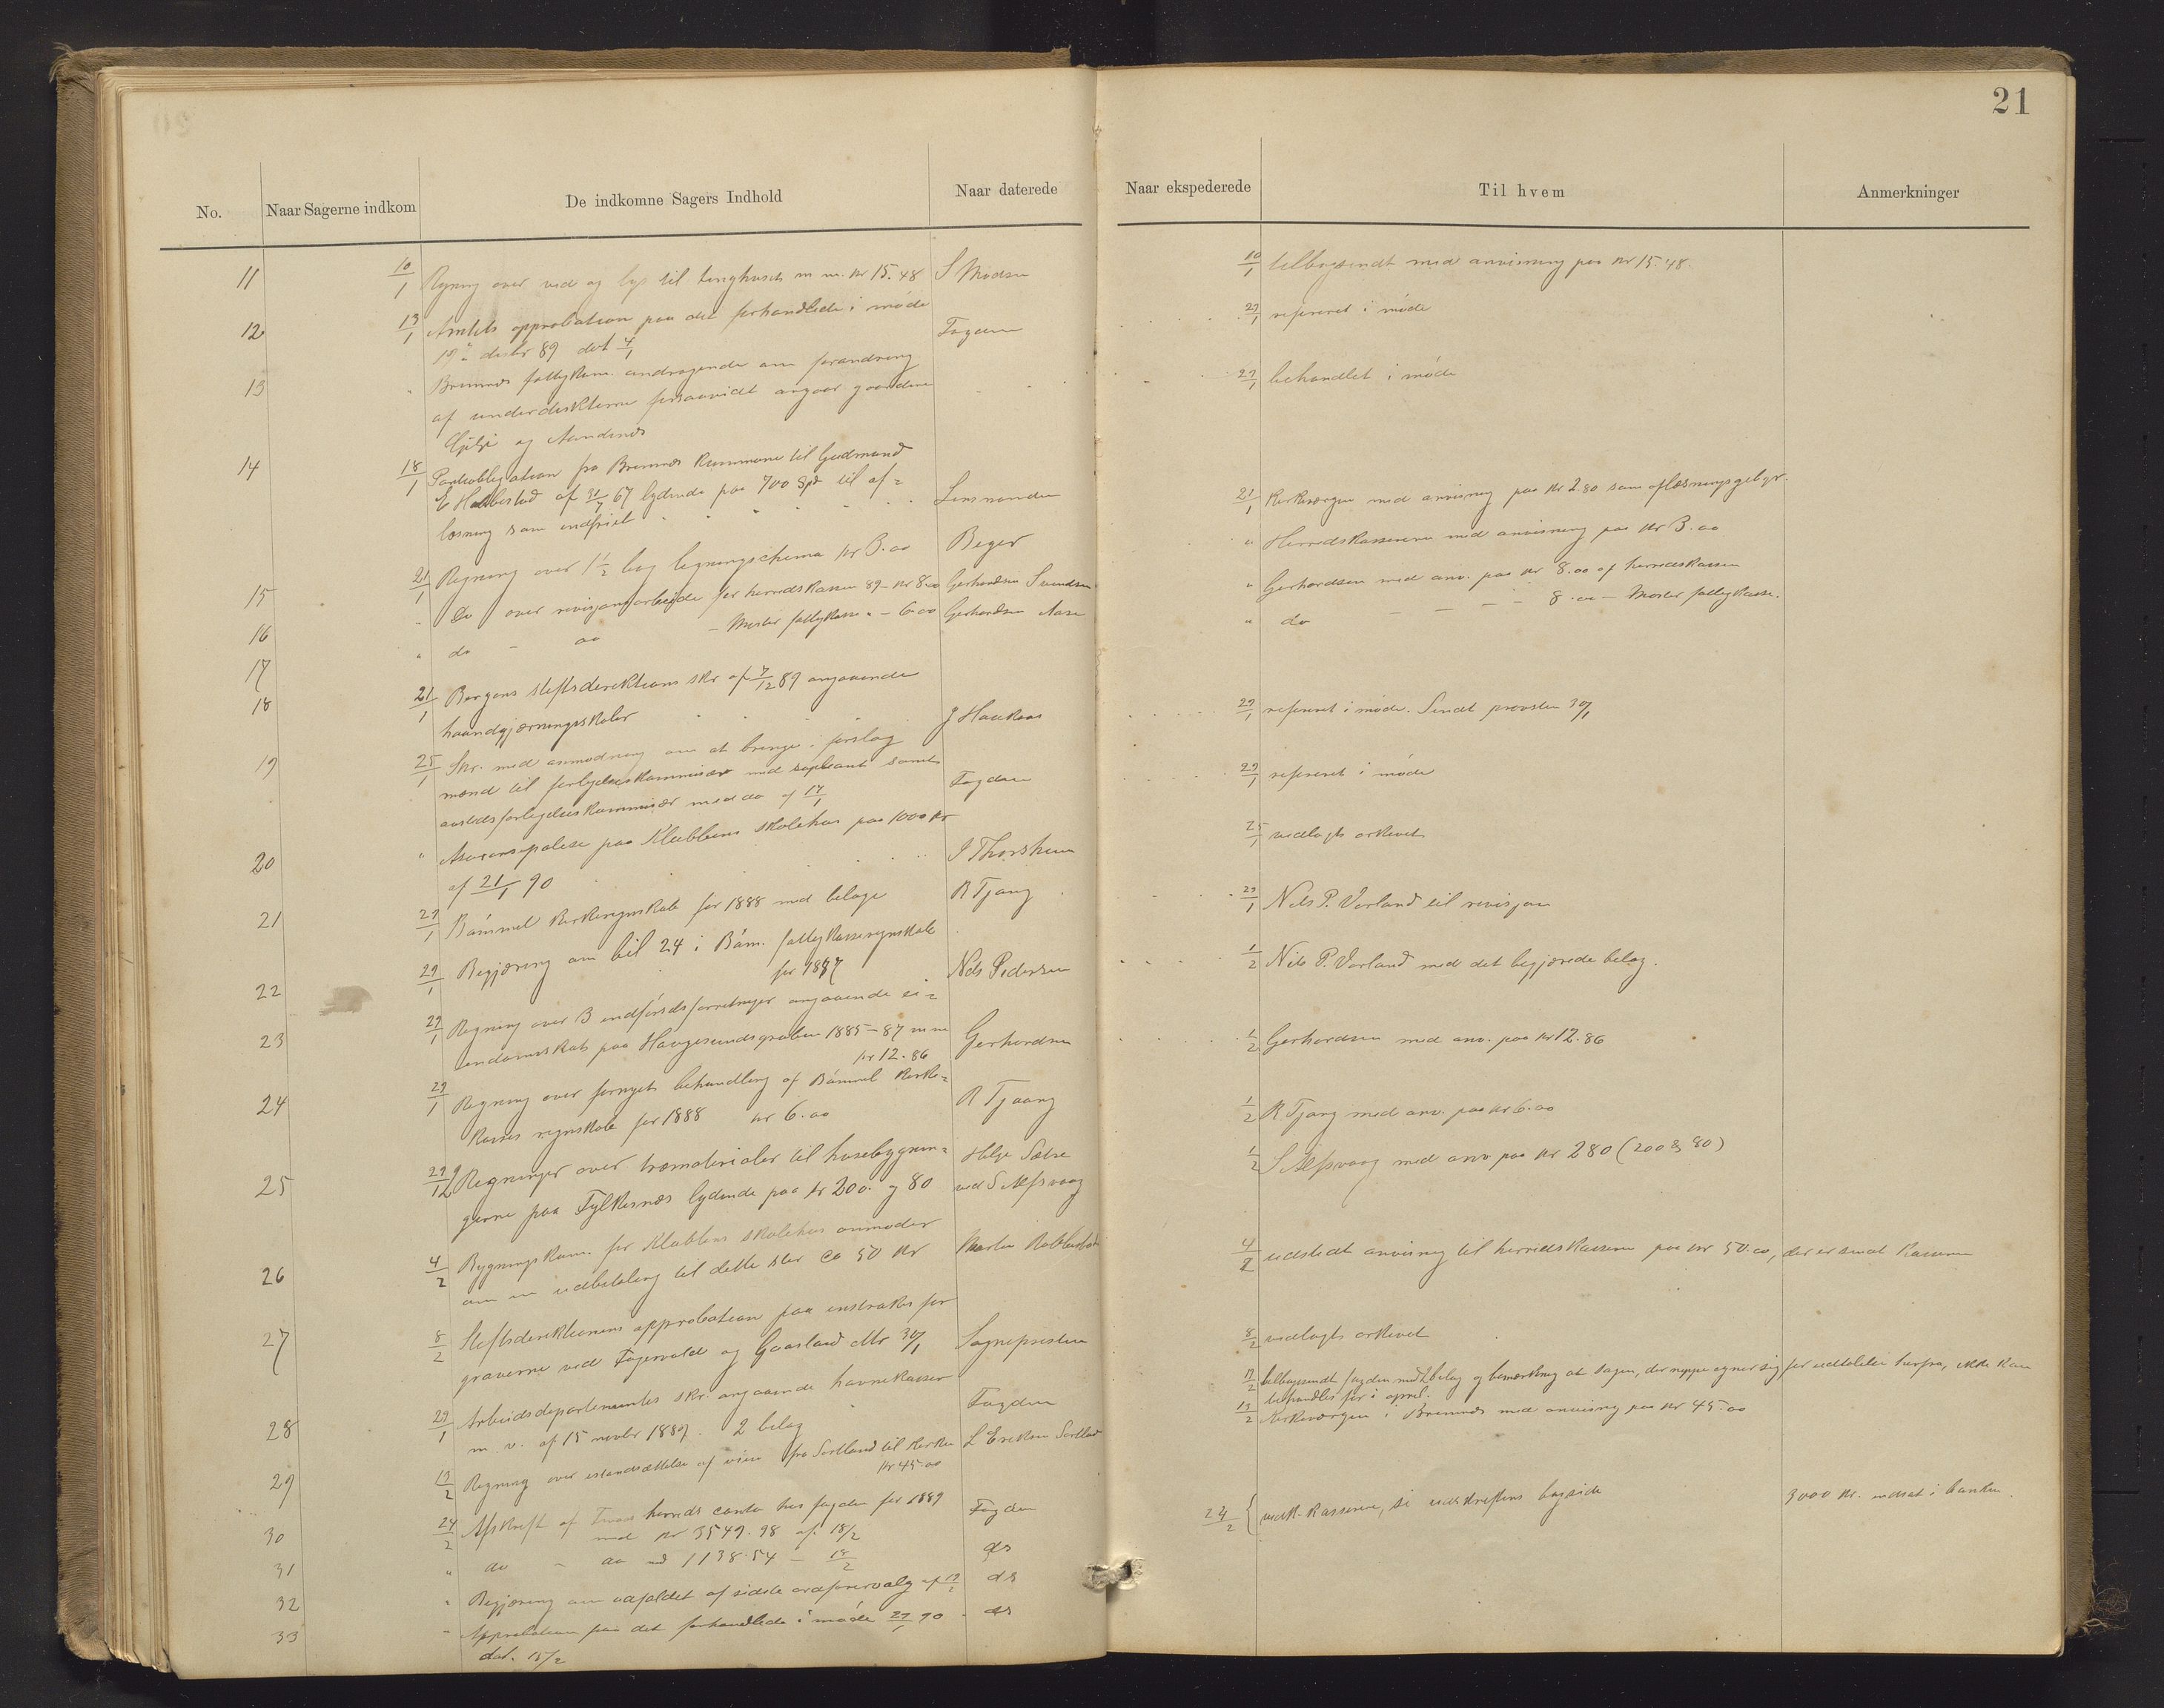 21
No.
Naar Sagerne indkom
De indkomne Sagers Indhold
Naar daterede
Naar ekspederede
Til hvem
Anmerkninger
11 10/1 Regning over ved og lys til tinghuset m m. kr 15.48 S Madsen
10/1 tilbagesendt med anvisning paa kr 15.48.
12 13/1 Amtets approbation paa det forhandlede i møde
19de desbr 89 dat 4/1 Fogden
27/1 refereret i møde
13 " Bremnes fattigkom. andragende om forandring
af underdistrikterne forsaavidt angaar gaardene
og Aandenes
27/1 behandlet i møde
14 18/1 Pantobligation fra Bremnes kommune til Gudmund
E Hallestad af 31/7 67 lydende paa 700 Spd til af=
læsning som indfriet Lensmanden
21/1 Kirkeværgen med anvisning paa kr 2.80 som aflæsningsgebyr.
15 21/1 Regning over 1 1/2 bog ligningschema kr 3.00 Beyer
" Herredskassereren med anvisning paa kr 3.00
16 " Do over revisjonsarbeide for herredskassen 89 - kr 8.00 Gerhardsen Svendsen
" Gerhardsen med anv. paa kr 8.00 af herredskassen
17 " do - do - Moster fattigkasse " - 6.00 Gerhardsen Aase
" do - - - - 8.00 - Moster fattigkasse.
18 21/1 Bergens stiftsdirektions skr. af 7/12 89 angaaende
haandgjerningsskoler J Haukaas
27/1 refereret i møde. Sendt provsten 30/1
19 25/1 Skr. med anmodning om at bringe i forslag
mænd til forligelseskommissær med supleant samt
forligelseskommissær med do af 17/1 Fogden
27/1 refereret i møde
20 " Assuransepolise paa Klubbens skolehus paa 1000 kr
af 21/1 90 I Thorsheim
25/1 vedlagt arkivet
21 27/1 Bømmel kirkeregnskab for 1888 med belage R Tjong
27/1 Nils P. Vorland til revisjon
22 29/1 Begjæring om bil 24 i Bøm. fattigkasseregnskab
for 1887 Nils Pedersen
1/2 Nils P. Vorland med det begjærede belag.
23 29/1 Regning over 3 indførselsforretninger angaaende ei=
endomsskat paa Haugesundsgruben 1885-87 m m
kr 12.86 Gerhardsen
1/2 Gerhardsen med anv. paa kr 12.86
24 29/1 Regning over fornyet behandling af Bømmel kirke=
kasses regnskab for 1888 kr 6.00 R Tjoang
1/2 R Tjong med anv. paa kr 6.00
25 29/1 2 Regninger over træmaterialer til husebygnin=
gerne paa Fylkesnæs lydende paa kr 200. og 80 Helge Sætre
ved S Alfsvaag
1/2 S Alfsvaag med anv paa kr 280 (200 & 80)
26 4/2 Bygningskom. for Klubbens skolehus anmoder
om en udbetaling til dette stør ca 50 kr Martin
4/2 udstedt anvisning til herredskassereren paa kr 50.00, der er sendt kassereren
27 8/2 Stiftsdirektionens approbation paa instruks for
graverne ved Fagervold og Gaasland dtr 30/1 Sognepresten
8/2 vedlagt arkivet
28 29/1 Arbeidsdepartementets skr. angaaende havnekasser
m. v. af 15 novbr 1889. 2 belag Fogden
tilbagesendt fogden med 2 belag og bemærkning at sagen, der neppe egner sig for udtalelse herfra, ikke kan
behandles før i april.
29 13/2 Regning over istandsættelse af veien fra Sortland til kirken
kr 45.00 L Eriksen Sortland
13/2 Kirkeværgen i Bremnes med anvisning paa kr 45.00
30 24/2 Afskrift af herreds conto hos fogden for 1889
med kr 3549.98 af 18/2 Fogden
24/2 { kassereren, se udskriftens bagside
3000 kr. indsat i banken.
31 " do - do med 1138.54 - 18/2 ds
32 " Begjæring om udfaldet af sidste ordførervalg af 19/2 ds
33 " Approbation paa det forhandlede i møde 27/1 90 ds
dat. 15/2